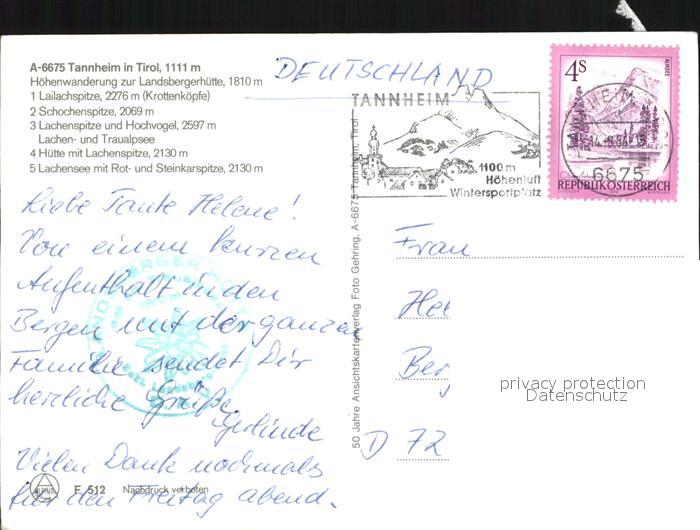 A-6675 Tannheim in Tirol, 1111 m
Höhenwanderung zur Landsbergerhütte, 1810 m
1 Lailachspitze, 2276 m (Krottenköpfe)
2 Schochenspitze, 2069 m
3 Lachenspitze und Hochvogel, 2597 m
Lachen- und Traualpsee
4 Hütte mit Lachenspitze, 2130 m
5 Lachensee mit Rot- und Steinkarspitze, 2130 m
DEUTSCHLAND
TANNHEIM
1100m
Höhenluft
Wintersportplatz
4S
ALMSEE
6675
REPUBLIK ÖSTERREICH
Liebe Tante Helene!
Von einem kurzen
Aufenthalt in den
Bergen mit der ganzen
Familie sendet Dir
herzliche Grüße
Gerlinde
Vielen Dank nochmals
für den Freitag abend.
50 Jahre Ansichtskartenverlag Foto Gehring, A-6675 Tannheim, Tirol
Frau
He
Ber
D 72
privacy protection
Datenschutz
ALPINA
E 512 Nachdruck verboten